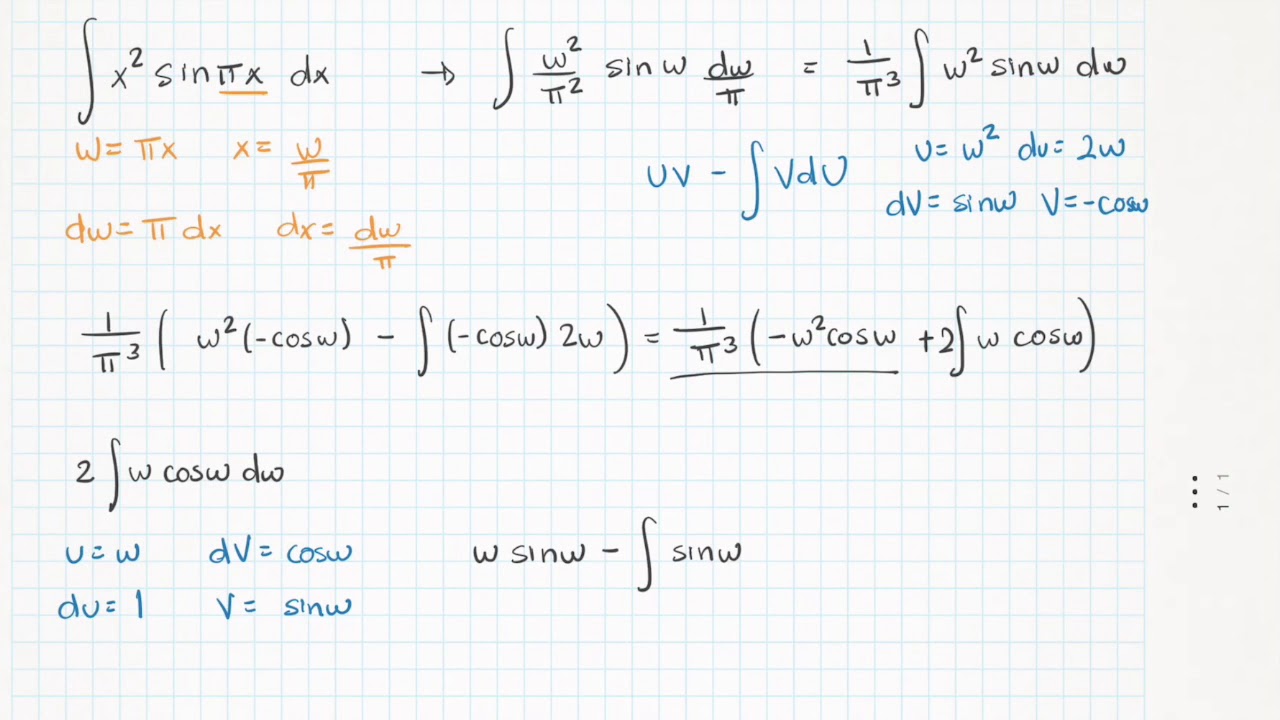 ∫ x² sin πx dx → ∫ w²/π² sin w dw/π = 1/π³ ∫ w² sinw dw
w = πx x = w/π
dw = π dx dx = dw/π
uv - ∫ v du
u = w² du = 2w
dv = sinw v = -cosw
1/π³ ( w² (-cosw) - ∫ (-cosw) 2w ) = 1/π³ ( -w² cosw + 2∫ w cosw )
2 ∫ w cosw dw
u = w dv = cosw
du = 1 v = sinw
w sinw - ∫ sinw
1 / 1